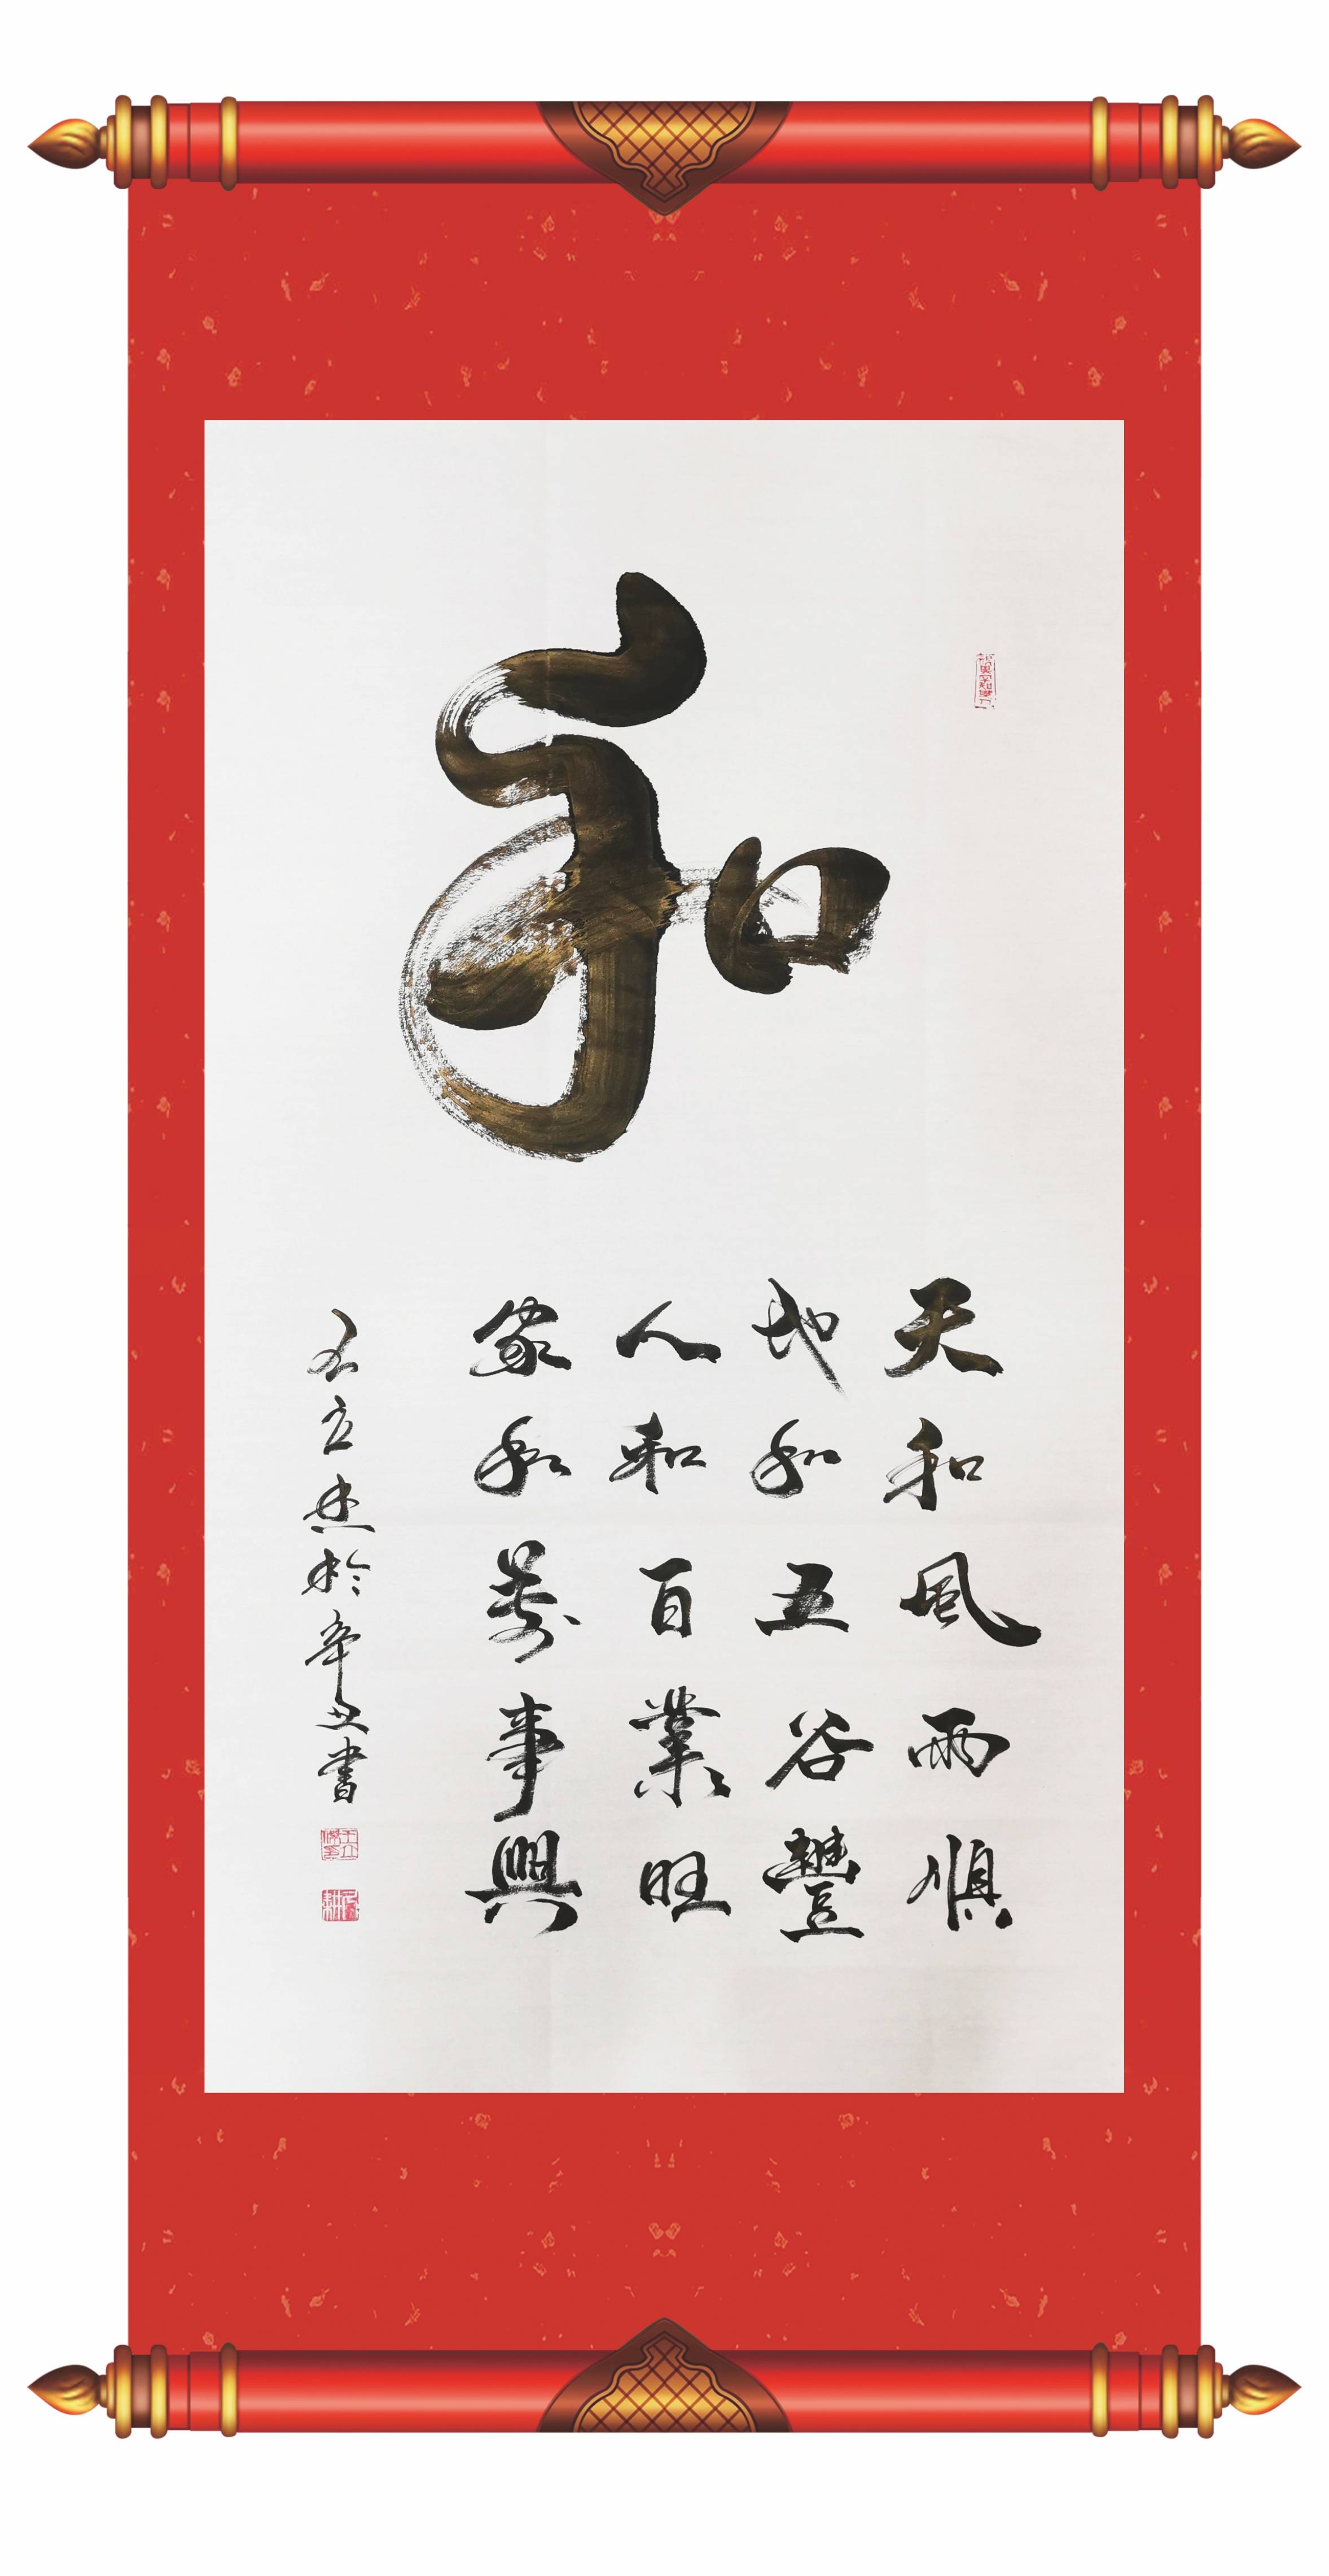 和
天和風雨順
地和五谷豐
人和百業旺
家和萬事興
立杰於辛丑書